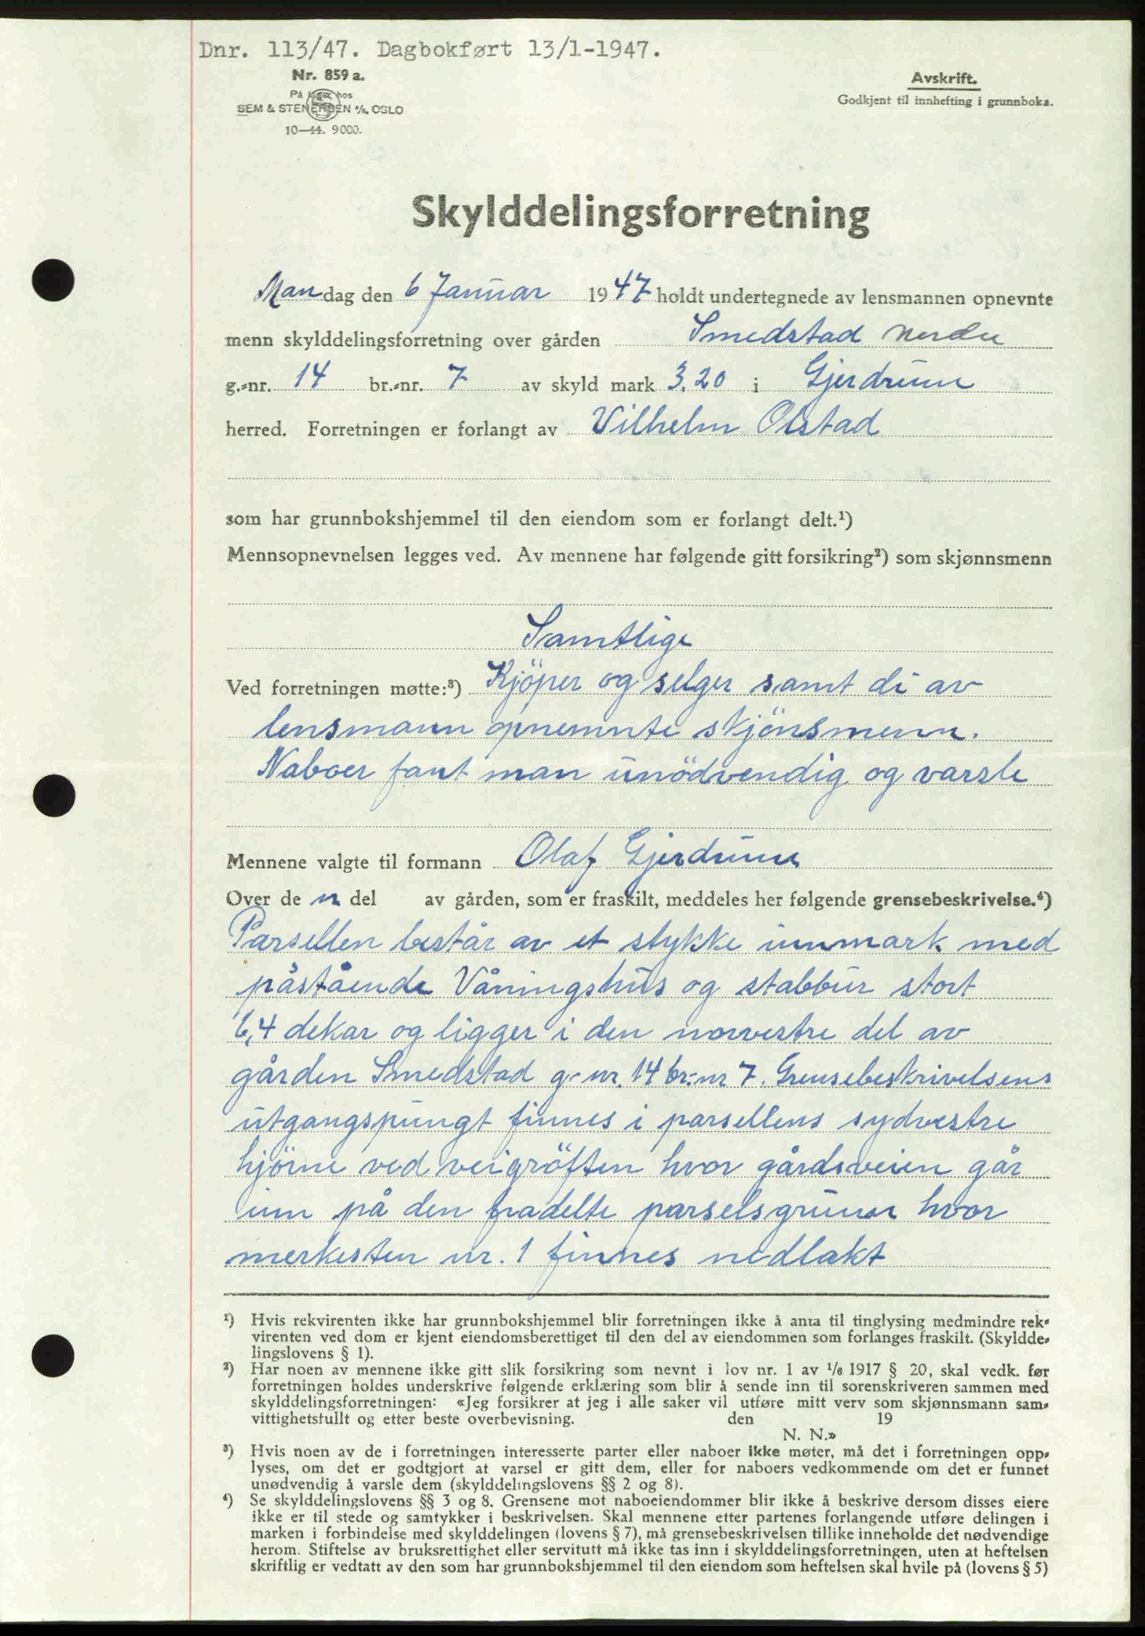 Dnr. 113/47. Dagbokført 13/1-1947.
Nr. 859 a.
På lager hos
SEM & STENERSEN A/S, OSLO
10—44. 9000.
Avskrift.
Godkjent til innhefting i grunnboka.
Skylddelingsforretning
Mandag den 6 Januar 1947 holdt undertegnede av lensmannen opnevnte
menn skylddelingsforretning over gården Smedstad nerdre
g.-nr. 14 br.-nr. 7 av skyld mark 3,20 i Gjerdrum
herred. Forretningen er forlangt av Vilhelm Olstad
som har grunnbokshjemmel til den eiendom som er forlangt delt.¹)
Mennsopnevnelsen legges ved. Av mennene har følgende gitt forsikring²) som skjønnsmenn
Samtlige
Ved forretningen møtte:³) Kjöper og selger samt di av
lensmann opnemnte skjönsmenn.
Naboer fant man unödvendig og varsle
Mennene valgte til formann Olaf Gjerdrum
Over de n del av gården, som er fraskilt, meddeles her følgende grensebeskrivelse.⁴)
Parsellen består av et stykke innmark med
påstående Våningshus og stabbur stort
6,4 dekar og ligger i den norvestre del av
gården Smedstad g-nr. 14 br-nr 7. Grensebeskrivelsens
utgangspungt finnes i parsellens sydvestre
hjörne ved veigröften hvor gårdsveien går
inn på den fradelte parselsgrunn hvor
merkesten nr. 1 finnes nedlakt
¹) Hvis rekvirenten ikke har grunnbokshjemmel blir forretningen ikke å anta til tinglysing medmindre rek-
virenten ved dom er kjent eiendomsberettiget til den del av eiendommen som forlanges fraskilt. (Skyldde-
lingslovens § 1).
²) Har noen av mennene ikke gitt slik forsikring som nevnt i lov nr. 1 av 1/6 1917 § 20, skal vedk. før
forretningen holdes underskrive følgende erklæring som blir å sende inn til sorenskriveren sammen med
skylddelingsforretningen: «Jeg forsikrer at jeg i alle saker vil utføre mitt verv som skjønnsmann sam-
vittighetsfullt og etter beste overbevisning. den 19
N. N.»
³) Hvis noen av de i forretningen interesserte parter eller naboer ikke møter, må det i forretningen opp-
lyses, om det er godtgjort at varsel er gitt dem, eller for naboers vedkommende om det er funnet
unødvendig å varsle dem (skylddelingslovens §§ 2 og 8).
⁴) Se skylddelingslovens §§ 3 og 8. Grensene mot naboeiendommer blir ikke å beskrive dersom disses eiere
ikke er til stede og samtykker i beskrivelsen. Skal mennene etter partenes forlangende utføre delingen i
marken i forbindelse med skylddelingen (lovens § 7), må grensebeskrivelsen tillike inneholde det nødvendige
herom. Stiftelse av bruksrettighet eller servitutt må ikke tas inn i skylddelingsforretningen, uten at heftelsen
skriftlig er vedtatt av den som har grunnbokshjemmel til den eiendom som heftelsen skal hvile på (lovens § 5)